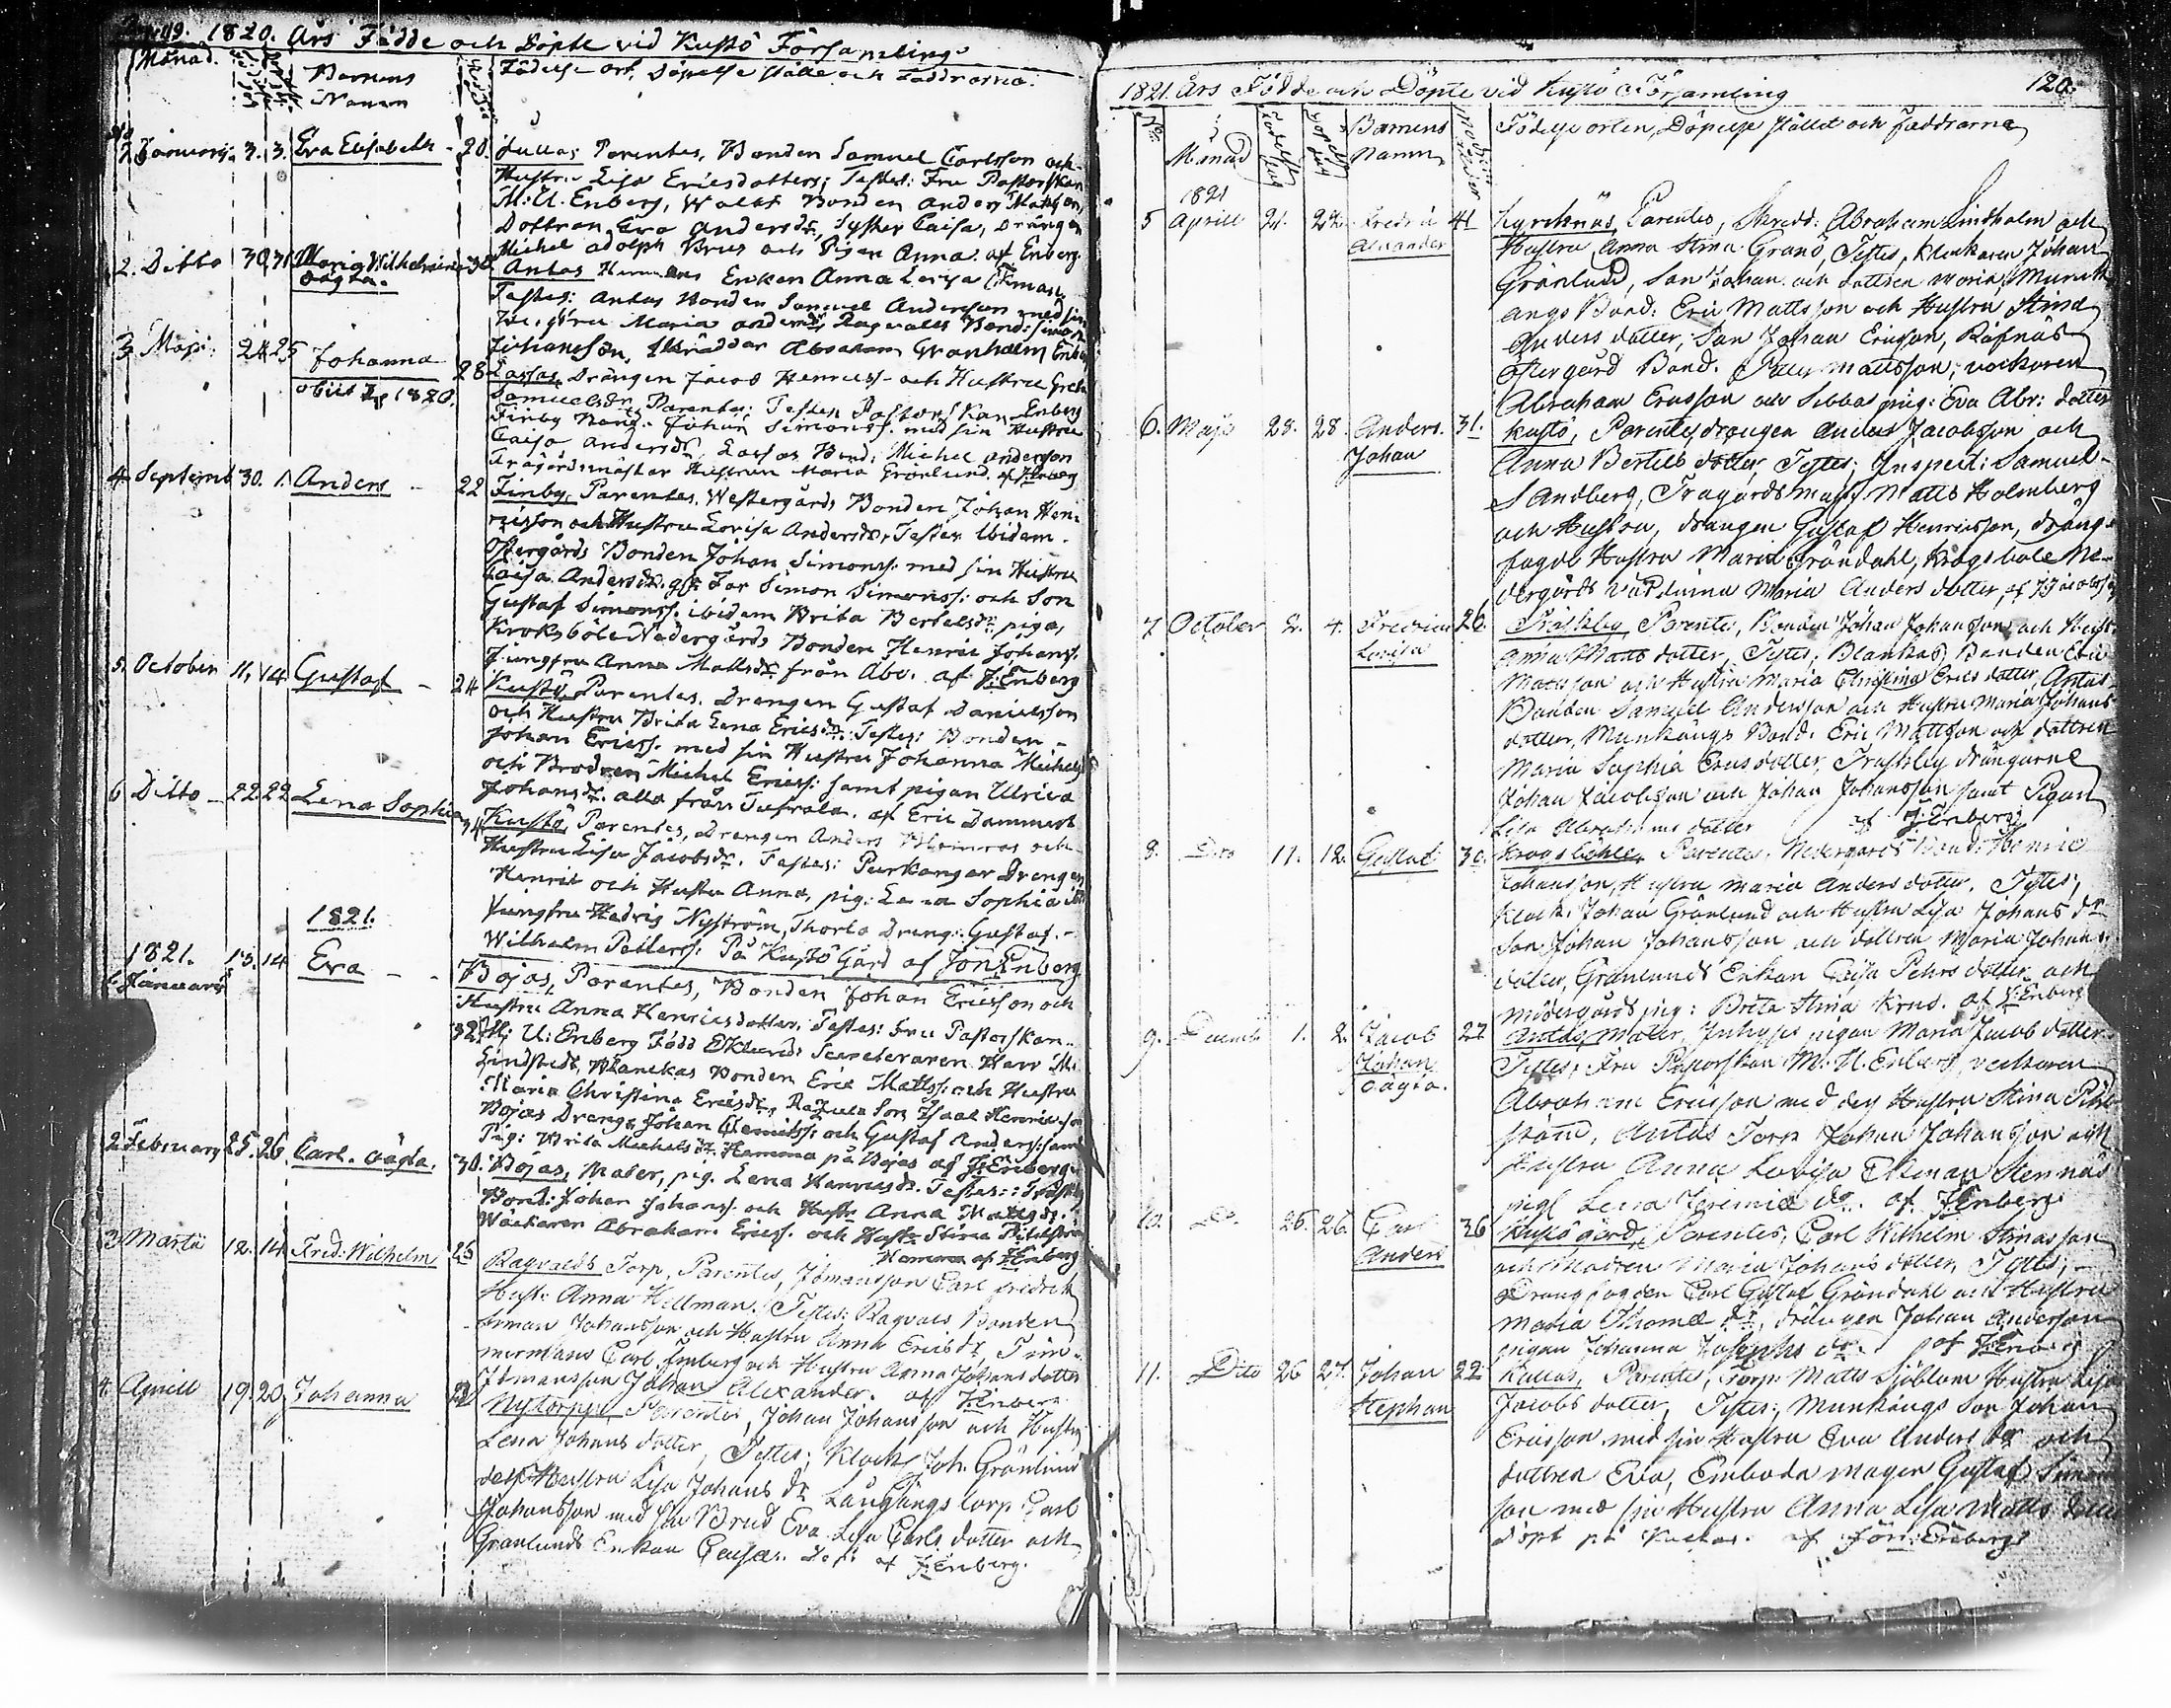 1820. Års Födde och Döpte vid Kustö Församling.
Månad. Barnens Namn Födelse ort, Döpelse ställe och Faddrarna.
Januarij 2. 3. Eva Elisabeth - 20. Kullas Parentes, Bonden Samuel Carlsson och
Hustru Lisa Ericsdotter; Testes: Fru Pastorskan
M: U. Enberg, Bonden Anders Mattsson,
Dottren Eva Andersdr, Syster Caisa, Drängen
Michel Adolph Brus och Pigan Anna. af Enberg
2. Ditto 30 31 Maria Wilhelmina oägta. 30 Antas Enkan Anna Lovisa Ekman.
Testes: Antas Bonden Samuel Andersson med sin
Maria Ragvalds Bond: Simon
Johansson, Skräddar Abraham Granholm Enberg
3 Maji 24 25 Johanna 28 Lassas, Drängen Jacob Henricss. och Hustru Greta
obiit 1820. Samuelsdr Parentes: Testes Pastorskan Enberg
Finby Bond. Johan Simonss. med sin Hustru
Caisa Andersdr, Lassas Bond: Michel Anderson
Trägårdsmästar Hustrun Maria Grönlund. af J: Enberg
4 Septemb 30. 1. Anders - 22 Finby, Parentes, Westergårds Bonden Johan Hen-
ricsson och Hustru Lovisa Andersdr, Testes Ibidem.
Östergårds Bonden Johan Simonss: med sin Hustru
Caisa Andersdr. Far Simon Simonss: och Son
Gustaf Simonss. ibidem Brita Bertelsdr piga,
Kroksböle Nedergårds Bonden Henric Johanss.
Jungfru Anna Mattsdr från Åbo. af J: Enberg
5. October 11. 14 Gustaf - 24 Kustö, Parentes. Drengen Gustaf Danielsson
och Hustru Brita Lena Ericsdr. Testes: Bonden -
Johan Ericss. med sin Hustru Johanna Michelsdr
och Brodren Michel Ericss: samt pigan Ulrica
Johansdr. alla från Tufrala. af Eric Dammert
6 Ditto - 22 22 Lena Sophia 34 Kustö, Parentes, Drengen Anders Thomas och
Hustru Lisa Jacobsdr. Testes: Drengen
Henric och Hustru Anna, pig: Lena Sophia
Jungfru Hedvig Nyström, Dreng: Gustaf. -
Wilhelm Petterss. På Kustö Gård af Jon Enberg
1821.
1821. 13. 14 Eva - - Bojas, Parentes, Bonden Johan Ericsson och
1. Januarii Hustru Anna Henricsdotter, Testes: Fru Pastorskan
32 M: U: Enberg Född Eklund: Secreteraren Herr M:
Lindstedt, Blanckas Bonden Eric Mattss: och Hustru
Maria Christina Ericsdr, Son Isaac Henricsson
Bojas Dreng. Johan och Gustaf Anderss: samt
Pig: Brita Michelsdr. Hemma på Bojas af J: Enberg
2 Februarij 25. 26. Carl. oägta. 30. Bojas, Mater, pig. Lena Henricsdr. Testes:
Bond: Johan Johanss: och Hustr Anna Mattsdr.
Wäckaren Abraham Ericss. och Hustr Stina
Hemma af J: Enberg
3 Martii 12. 14 Fred: Wilhelm 25 Ragvalds Torp. Parentes, Carl Fredrik
Hustr: Anna Hellman. Testes: Ragvals Bonden
Johansson och Hustru Anna Ericsdr Tim-
mermans Carl och Hustru Anna Johansdotter
Johan Alexander. af J: Enberg
4. Aprill 19. 20. Johanna Nytorpp Parentes, Johan Johansson och Hustru
Lena Johans dotter, Testes; Klock: Joh. Grönlund
dess Hustru Lisa Johans dr Långängs torp. Carl
Johansson med sin Brud Eva Lisa Carls dotter och
Granlunds Enkan Caisa. af J: Enberg.
1821. Års Födde och Döpte vid Kustö Församling 120.
No. Månad Födelse dag Döpelse dag Barnens Namn Födelse orten, Döpelse stället och Faddrarne
1821
5 Aprill 21. 22. Fredric Alexander 41 Kyrcknäs, Parentes, Skredd: Abraham Lindholm och
Hustru Anna Stina Granö, Testes, Klockaren Johan
Grönlund, Son Johan och dottren Maria, Munck
ängs Bond: Eric Mattsson och Hustru Stina
Anders dotter, Son Johan Ericson, Räfnäs
Östergård Bond. Petter Mattsson, vackaren
Abraham Ericsson och Sibbas pig: Eva Abr: dotter
6. Maji 28. 28 Anders. Johan 31. Kustö, Parentes, drängen Anders Jacobsson och
Anna Bertils dotter, Testes; Inspect: Samuel
Sandberg, Trägårdsmäst: Matts Holmberg
och Hustru, drängen Gustaf Henricsson, dräng-
fogde Hustru Maria Gröndahl, Krogsböle Ne-
dergårds Maria Anders dotter, af
7 October 2. 4. Fredrica Lovisa 26. Träskby, Parentes, Bonden Johan Johansson och Hustr:
Anna Matts dotter, Testes, Blankas Bonden Eric
Mattsson och Hustru Maria Christina Erics dotter, Antas
Bonden Samuel Andersson och Hustru Maria Johans
dotter, Munkängs Bond: Eric Mattson och dottren
Maria Sophia Erics dotter, Träskby drängarne
Johan Jacobsson och Johan Johansson samt Pigan
Lisa Abrahams dotter af J: Enberg
8. Dto 11. 12. Gustaf 30. Krogsböhle, Parentes, Nedergårds Bond: Henric
Johansson, Hustru Maria Anders dotter. Testes,
Klock: Johan Grönlund och Hustru Lisa Johans dr
Son Johan Johansson och dottren Maria Johans-
dotter, Granlunds Enkan Caisa Pehrs dotter och
pig: Brita Stina af J: Enberg
9. Decemb 1. 2. Jacob Johan oägta. 27 Antas, Mater, Inhyses pigan Maria Jacob dotter
Testes; Fru Pastorskan M: U. Enberg, veckaren
Abraham Ericsson med dess Hustru Stina
Antas Torp Johan Johansson och
Hustru Anna Lovisa Ekman Stennäs
pig: Lena Jeremiæ dr. af J: Enberg
10. D. 26. 26. Carl Anders 36 Kustö gård, Parentes, Carl Wilhelm
och Modren Maria Johans dotter, Testes; -
Drängfogden Carl Gustaf Gröndahl och Hustru
Maria Thomæ dr, drängen Johan Anderson
pigan Johanna dr af J: Enberg
11. Dito 26 27. Johan Stephan 22 Kullas, Parentes, Torp: Matts Sjöblom Hustru Lisa
Jacobs dotter, Testes; Munkängs Son Johan
Ericsson med sin Hustru Eva Anders dr och
dottren Eva, Emboda mågen Gustaf
son med sin Hustru Anna Lisa Matts dotter
döpt på Kullas. af Jön: Enberg